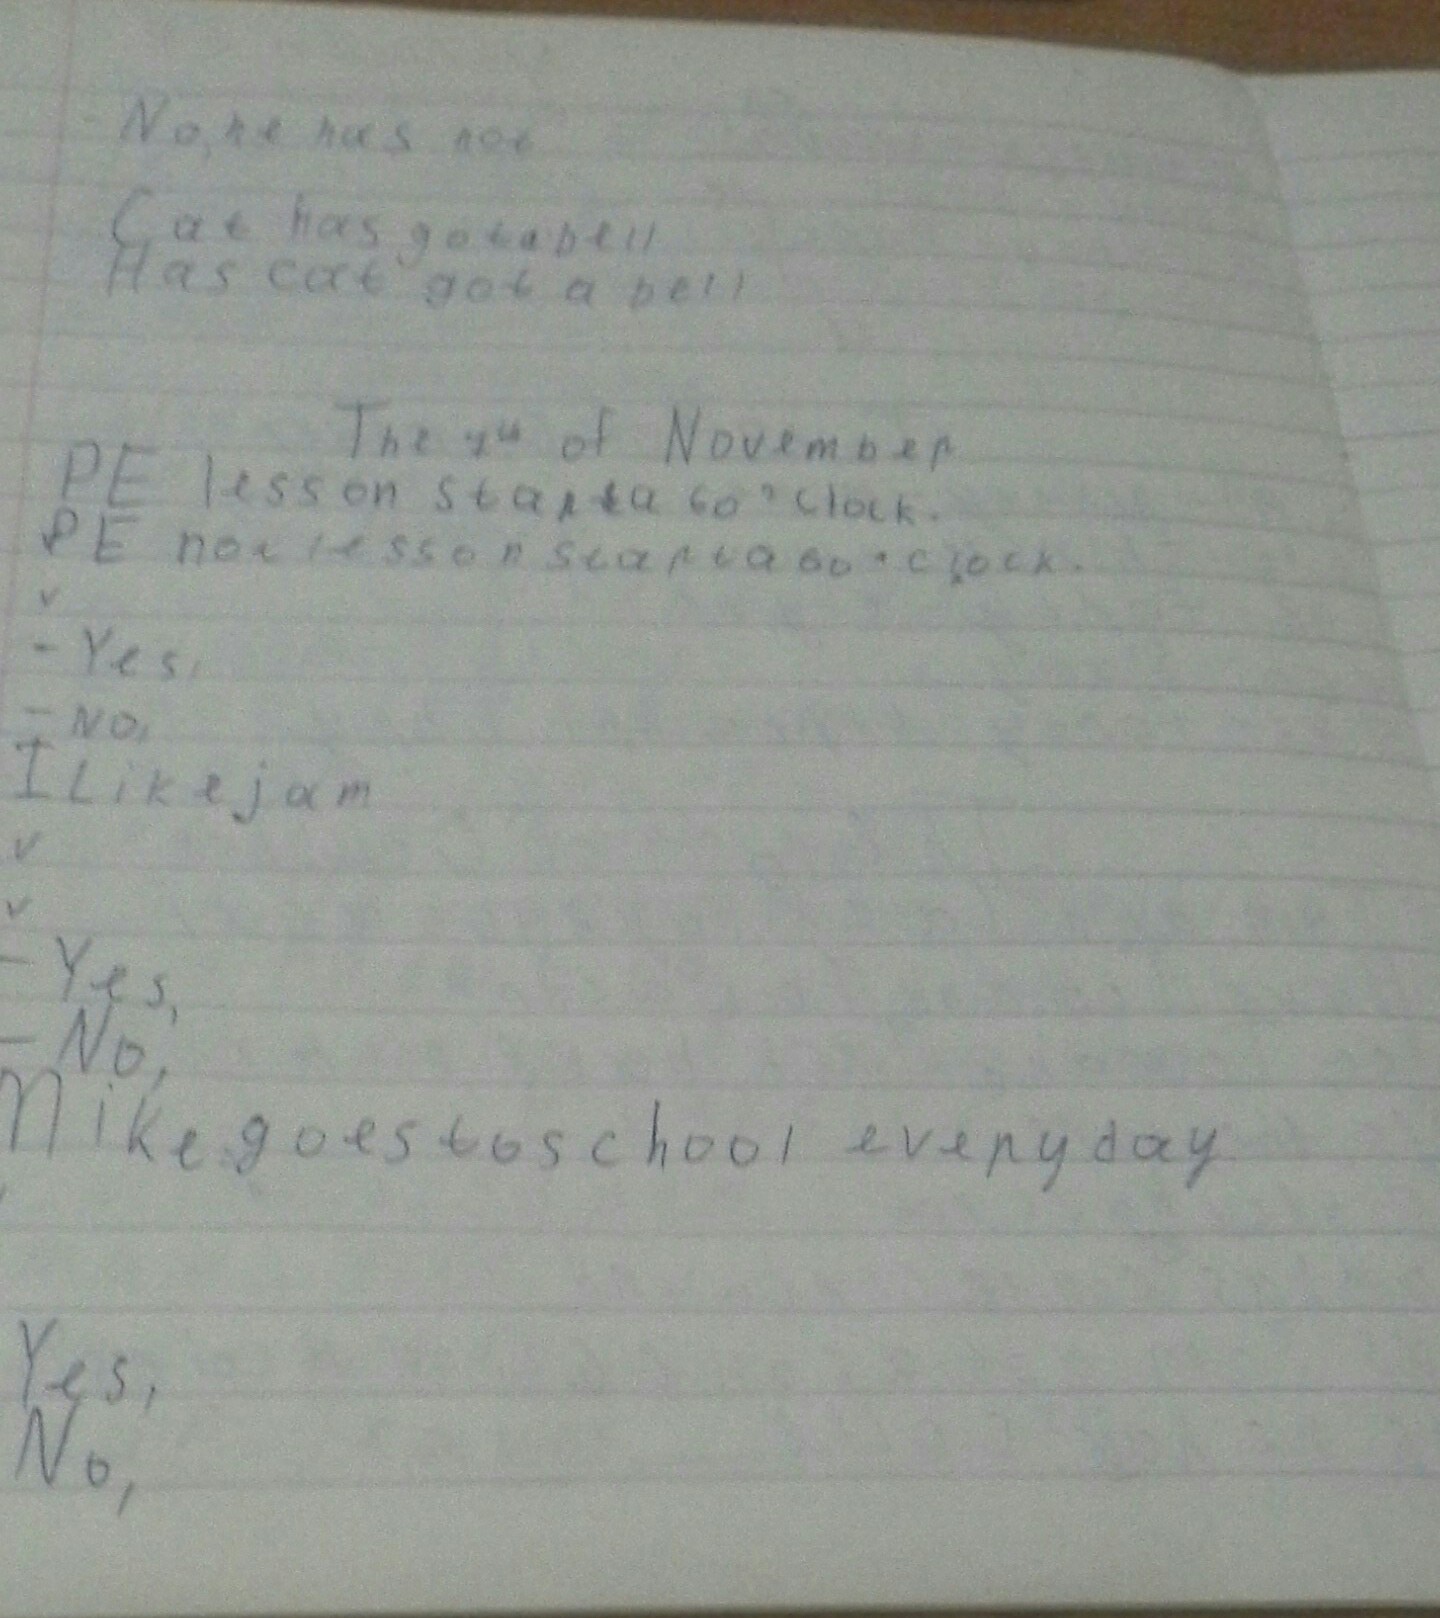 - No, he has not
Cat has got a bell
Has cat got a bell
The of November
PE lesson starta 6 o'clock.
PE not lesson starta 6 o'clock.
v
- Yes,
- No,
I Like jam
v
v
- Yes,
- No,
Mike goes to school every day
Yes,
No,